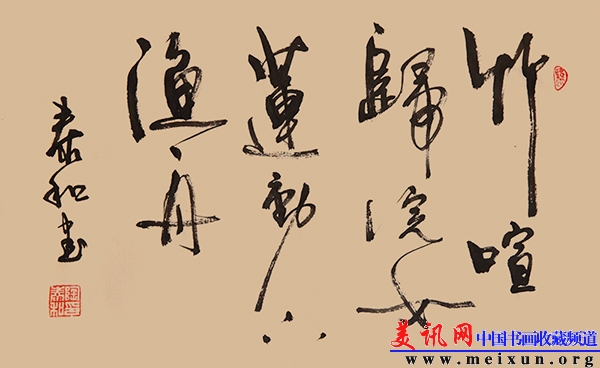 竹喧
歸浣女
蓮動下
漁舟
泰和书
美讯网 中国书画收藏频道
www.meixun.org